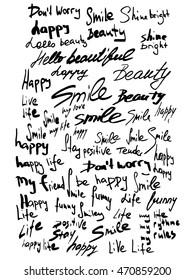 Don't worry Smile Shine bright
happy Beauty
Hello beauty shine bright
Hello beautiful
happy Beauty
Happy Smile Beauty
Live life
Smile Happy
Smile my life Smile Smile
happy Stay positive
happy life Don't worry happy
my friend be happy Smile happy life
Happy Smile funny life funny
Life funny Smiley Life
Life positive Smile my life my rules
Stay happy
happy life Live Life
www.shutterstock.com · 470859200